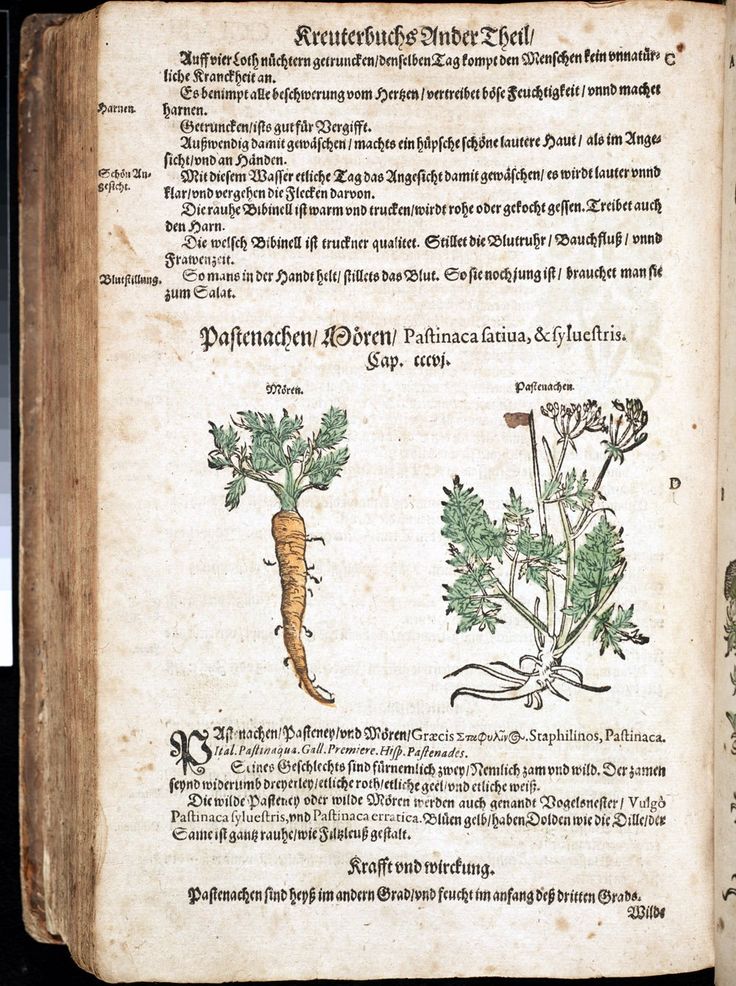 Kreuterbuchs Ander Theil/
Auff vier Loth nüchtern getruncken/denselben Tag kompt den Menschen kein vnnatür-
C
liche Kranckheit an.
Es benimpt alle beschwerung vom Hertzen/vertreibet böse Feuchtigkeit/vnnd machet
Harnen.
harnen.
Getruncken/ists gut für Vergifft.
Außwendig damit gewäschen/machts ein hüpsche schöne lautere Haut/als im Ange-
sicht/vnd an Händen.
Schön An-
gesicht.
Mit diesem Wasser etliche Tag das Angesicht damit gewäschen/es wirdt lauter vnnd
klar/vnd vergehen die Flecken darvon.
Die rauhe Bibinell ist warm vnd trucken/wirdt rohe oder gekocht gessen. Treibet auch
den Harn.
Die welsch Bibinell ist truckner qualitet. Stillet die Blutruhr/Bauchfluß/vnnd
Frawenzeit.
Blutstillung.
So mans in der Handt helt/stillets das Blut. So sie noch jung ist/brauchet man sie
zum Salat.
Pastenachen/Mören/Pastinaca satiua, & syluestris.
Cap. cccvj.
Mören.
Pastenachen.
D
PAstenachen/Pasteney/vnd Mören/Græcis Σταφυλῖνος. Staphilinos, Pastinaca.
Ital. Pastinaqua. Gall. Premiere. Hisp. Pastenades.
Seines Geschlechts sind fürnemlich zwey/Nemlich zam vnd wild. Der zamen
seynd widerumb dreyerley/etliche roth/etliche geel/vnd etliche weiß.
Die wilde Pasteney oder wilde Mören werden auch genandt Vogelsnester/Vulgò
Pastinaca syluestris, vnd Pastinaca erratica. Blüen gelb/haben Dolden wie die Dille/der
Same ist gantz rauhe/wie Filtzleuß gestalt.
Krafft vnd wirckung.
Pastenachen sind heyß im andern Grad/vnd feucht im anfang deß dritten Grads.
Wilde